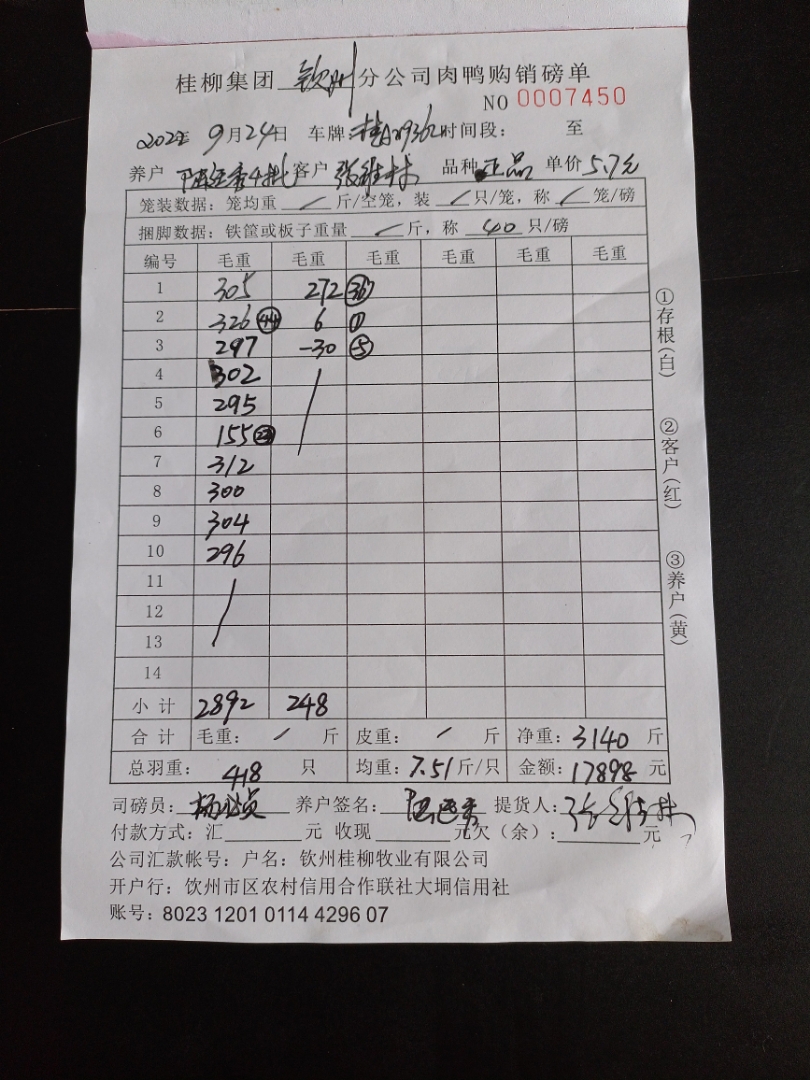 桂柳集团 钦州 分公司肉鸭购销磅单
NO 0007450
2022年 9月24日 车牌: 时间段: 至
养户 客户 张维林 品种 正品 单价 5.7元
笼装数据: 笼均重 / 斤/空笼, 装 / 只/笼, 称 / 笼/磅
捆脚数据: 铁筐或板子重量 / 斤, 称 40 只/磅
编号 毛重 毛重 毛重 毛重 毛重 毛重
1 305 272 36
2 326 44 6 1
3 297 -30 -5
4 302
5 295
6 155
7 312
8 300
9 304
10 296
11
12
13
14
小计 2892 248
合计 毛重: / 斤 皮重: / 斤 净重: 3140 斤
总羽重: 418 只 均重: 7.51 斤/只 金额: 17898 元
司磅员: 养户签名: 提货人:
付款方式: 汇 元 收现 元欠(余): 元
公司汇款帐号: 户名: 钦州桂柳牧业有限公司
开户行: 钦州市区农村信用合作联社大垌信用社
账号: 8023 1201 0114 4296 07
①存根(白)
②客户(红)
③养户(黄)